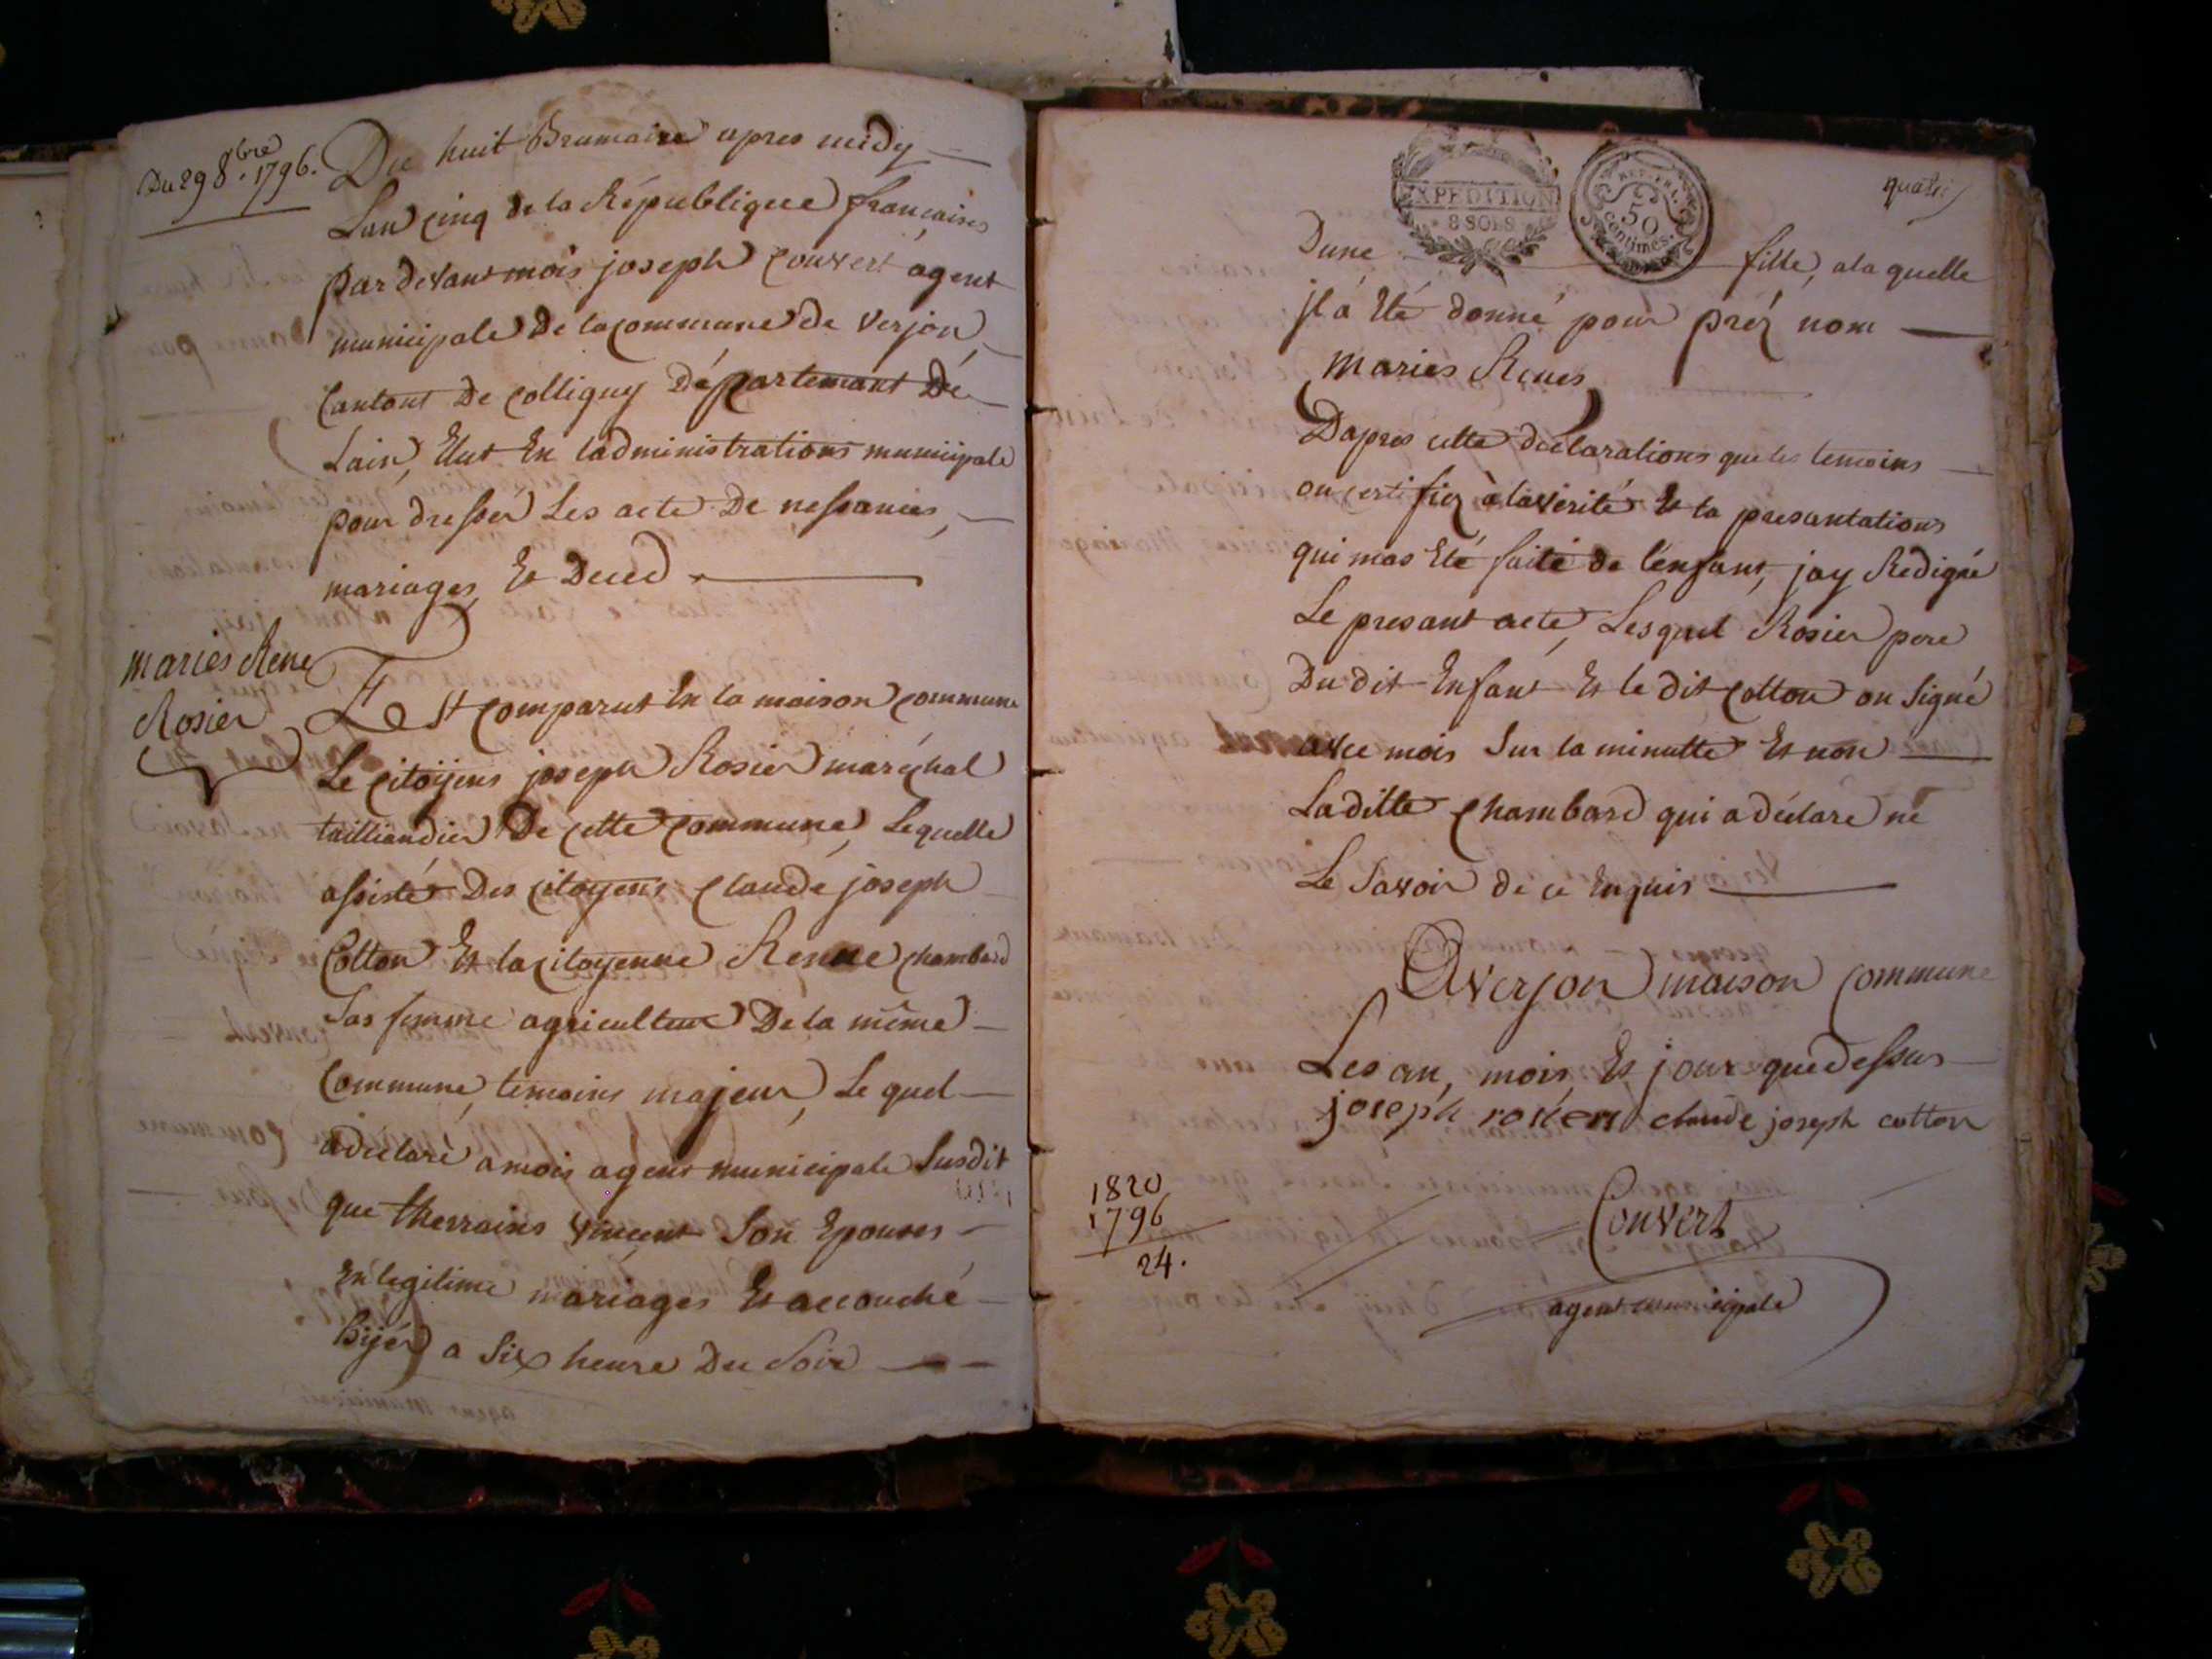 Du 29 8bre 1796.
Du huit Brumaire apres midy
Lan cinq de la République francaises
par devant mois joseph Convert agent
municipale de la commune de Verjon
Cantont de Colligny Département De
Lain, Elut En ladministrations municipale
pour dresser Les acte De nessances,
mariages, Et Deced
maries Rene
Rosier
Est comparut En la maison commune
Le citoijens joseph Rosier maréchal
tailliandier De cette commune, Lequelle
assisté Des citoyens Claude joseph
Cotton Et la citoyenne Renne Chambard
Sas femme agriculteur De la même
Commune, temoins majeur, Le quel
a déclaré a mois agent municipale Susdit
que therrains vincent Son Epouses
En legitime mariages Et accouché
hijér a Six heure Du Soir
EXPEDITION
8 SOLS
REP. FRA.
50
centimes.
Dune fille, a la quelle
jl a Eté donné pour préz nom
Maries Renes
Dapres cette déclarations que les temoins
on certifiez à la vérité Et la presantations
qui mas Eté faite de lenfant, jay Redigée
Le presant acte, Lesquel Rosier pere
Du dit Enfant Et le dit Cotton on Signé
avec mois Sur la minutte Et non
La ditte Chambard qui a déclaré ne
Le Savoir de ce Enquis
A verjon maison Commune
Les an, mois, Et jour que dessus
joseph rosier claude joseph cotton
Convert
agent municipale
1820
1796
24.